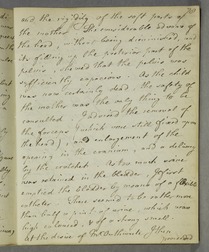 and the rigidity of the soft parts of
the mother. The considerable advance of
the head, when being diminished, and
its resting in the posterior part of the
pelvis, shewed that the pelvis was
sufficiently capacious. As the child
was now certainly dead, the safety of
the mother was the only thing to be
consulted. I advised the removal of
the forceps (which were still fixed upon
the head), and enlargement of the
opening in the cranium, and a delivery
by the crotchet. As too much urine
was retained in the bladder, I first
emptied the bladder by means of a flexible
catheter. There seemed to be rather more
than half a pint of urine, which was
high coloured, & of a strong smell